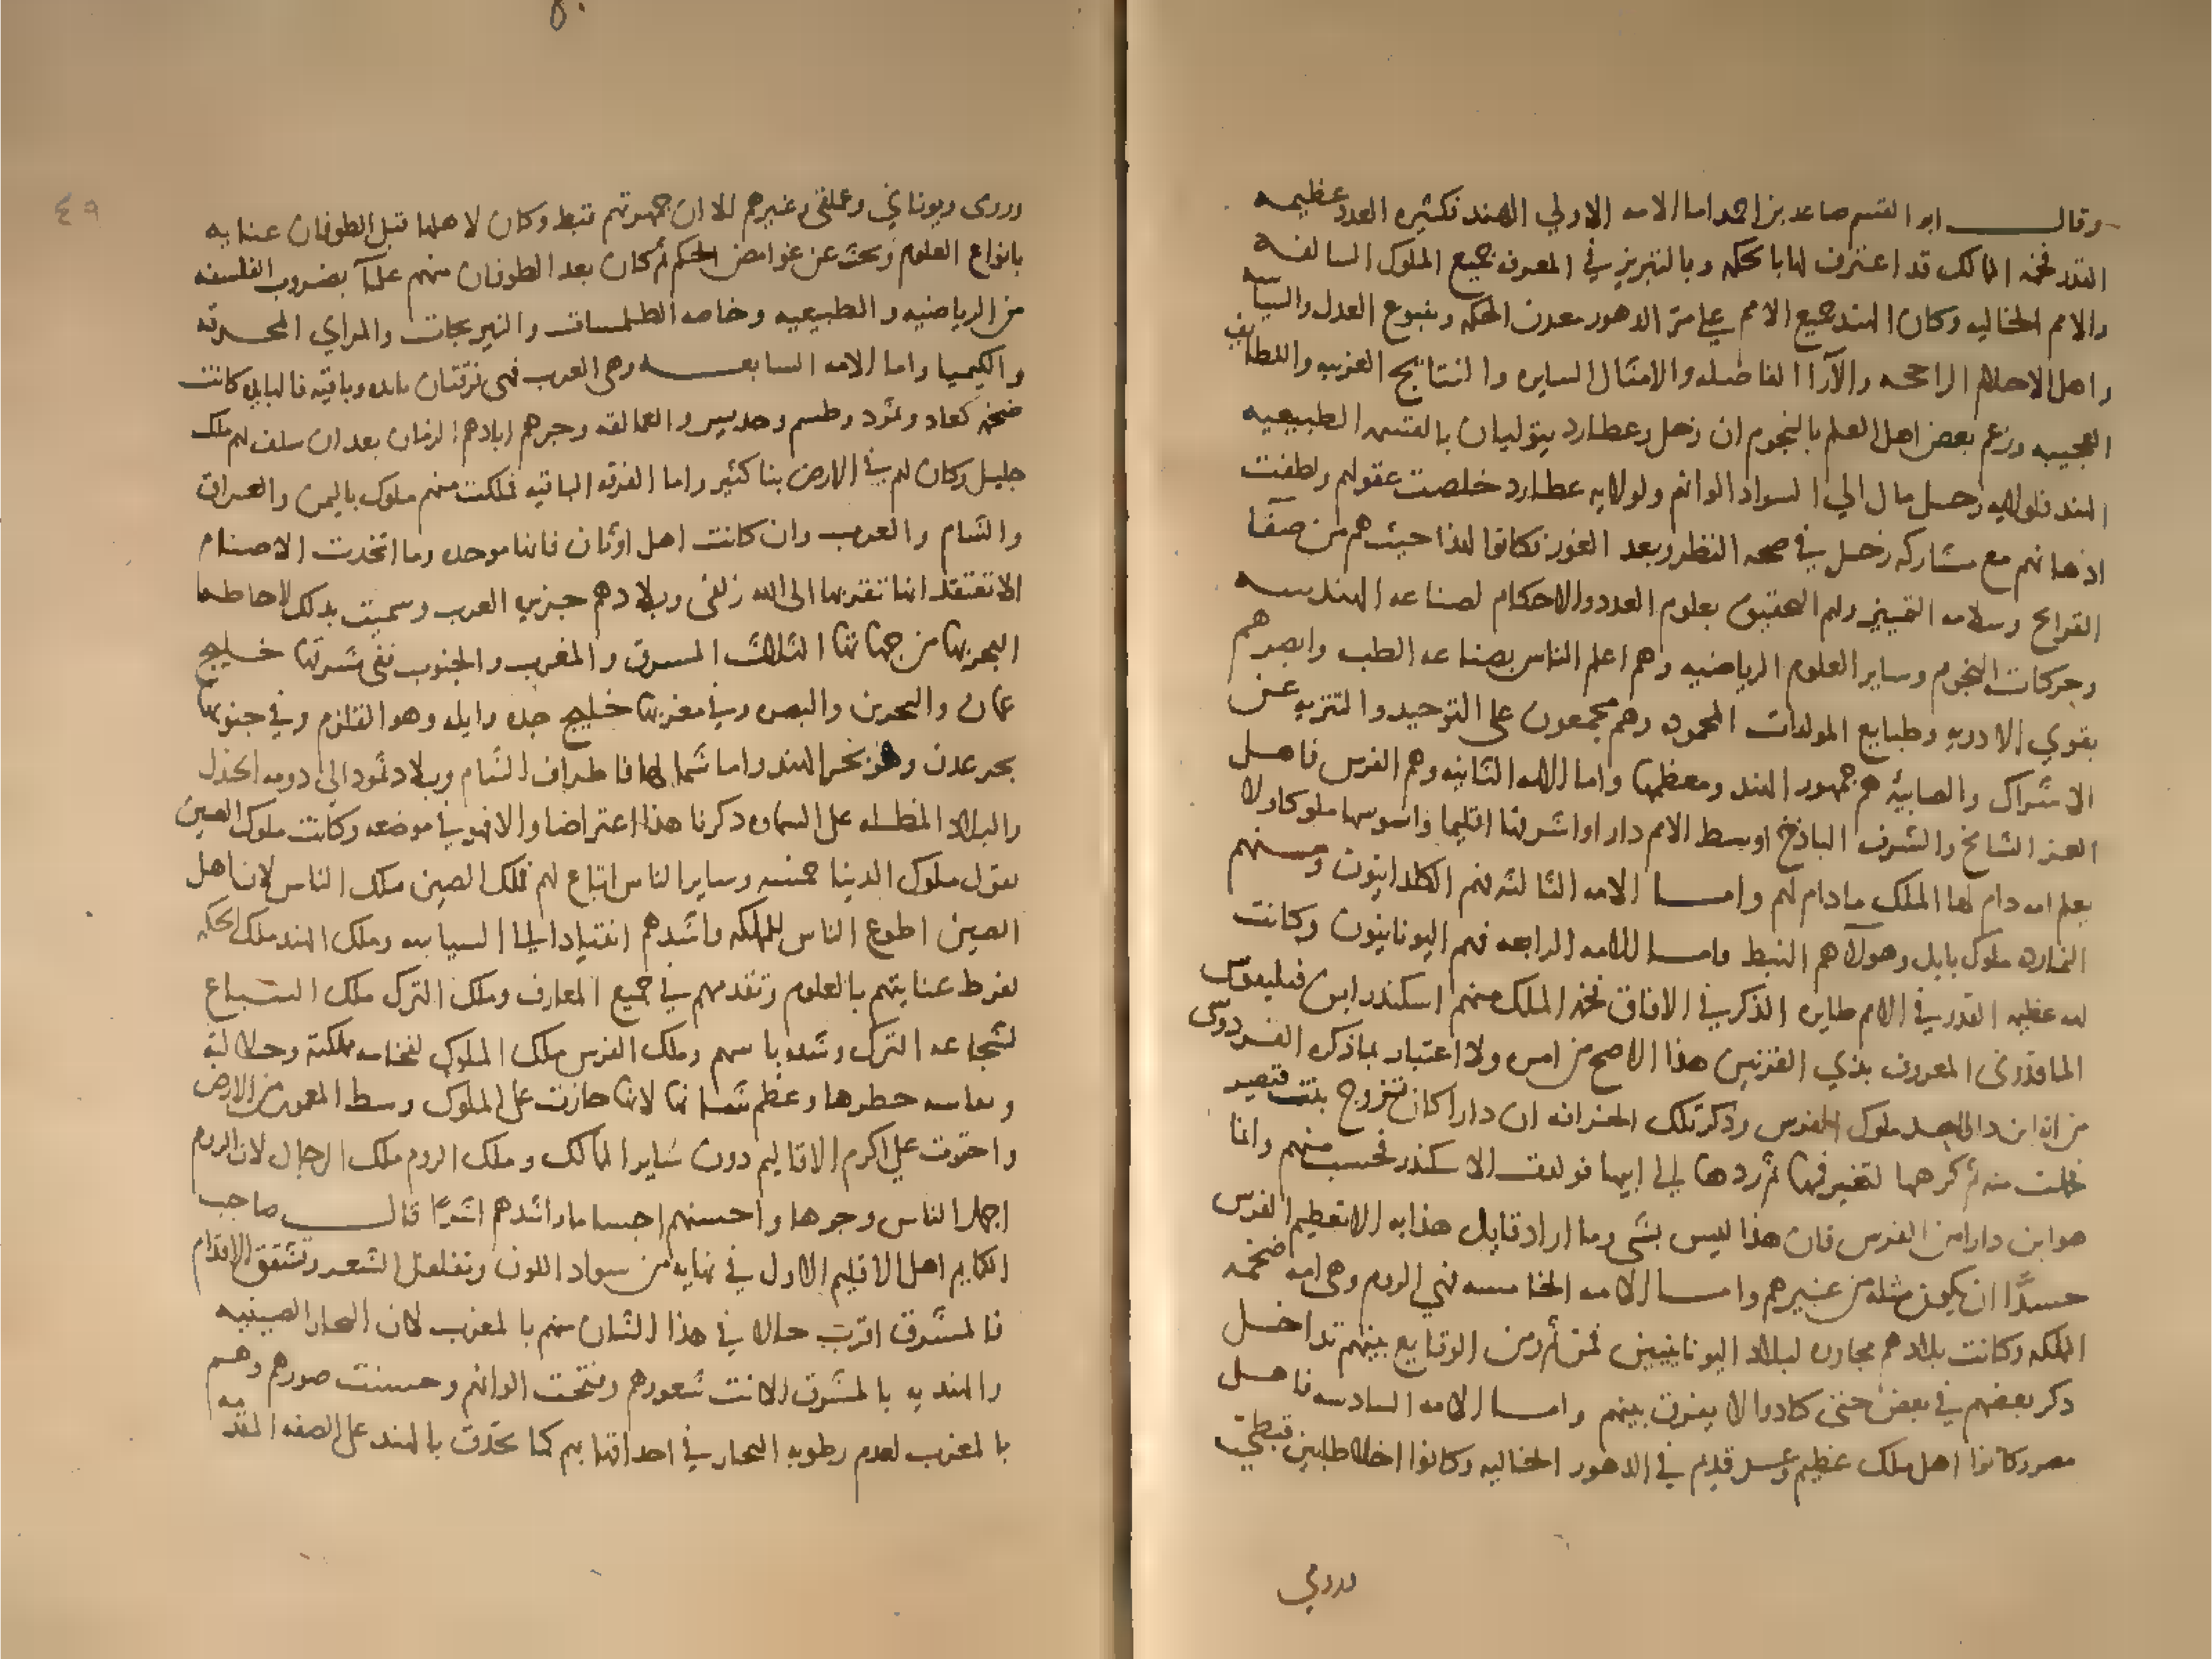 وقال ابو القسم صاعد بن احمد اما الامه الاولي الهند فكثيره العدد عظيمه
القدر فخمه الممالك قد اعترف لها بالحكمه وبالتبريز في المعرفه جميع الملوك السالفه
والامم الخاليه وكان الهند جميع الامم علي مر الدهور معدن الحكمه وينبوع العدل والسياسه
واهل الاحلام الراجحه والآراء الفاضله والامثال السايره والنتايج الغريبه واللطايف
العجيبه وزعم بعض اهل العلم بالنجوم ان زحل وعطارد يتوليان بالقسمه الطبيعيه
الهند فلولايه زحل مال الي السواد الوانهم ولولايه عطارد خلصت عقولهم ولطفت
اذهانهم مع مشاركه زحل في صحه النظر وبعد الغور فكانوا لهذا حيث هم من صفآ
القرايح وسلامه التمييز ولهم التحقيق بعلوم العدد والاحكام لصناعه الهندسه
وحركات النجوم وساير العلوم الرياضيه وهم اعلم الناس بصناعه الطب وابصرهم
بقوي الادويه وطبايع المولدات المحموده وهم مجمعون علي التوحيد والتنزيه عن
الاشراك والصابيه هم جمهور الهند ومعظمها واما الامه الثانيه وهم الفرس فاهل
العز الشامخ والشرف الباذخ اوسط الامم دارا واشرفها اقليما واسوسها ملوكا ولا
يعلم امه دام لها الملك ما دام لهم وامـا الامه الثالثه فهم الكلدانيون ومنهم
النمارده ملوك بابل وهولآء هم النبط وامـا الامه الرابعه فهم اليونانيون وكانت
امه عظيمه القدر في الامم طايره الذكر في الافاق فخمه الملك منهم اسكندر ابن فيليفوس
الماقدوني المعروف بذي القرنين هذا الاصح من امره ولا اعتبار بما ذكره الفردوسي
من انه ابن دارا احد ملوك الفرس وذكر تلك الخرافه ان دارا كان تزوج بنت قيصر
فحملت منه ثم كرهها لتغير فمها ثم ردها الي ابيها فولدت الاسكندر فحسب منهم وانما
هو ابن دارا من الفرس فان هذا ليس بشي وما اراد قايل هذا به الا تعظيم الفرس
حسدًا ان يكون مثله من غيرهم وامـا الامه الخامسه فهي الروم وهي امه ضخمه
المملكه وكانت بلادهم مجاوره لبلاد اليونانيين فمن ثم ومن الوقايع بينهم تداخل
ذكر بعضهم في بعض حتي كادوا لا يفرق بينهم وامـا الامه السادسه فاهل
مصر وكانوا اهل ملك عظيم وعز قديم في الدهور الخاليه وكانوا اخلاطا بين قبطي
ورومي
٤٩
ورومي ويوناني وعملقي وغيرهم الا ان جمهرتهم قبط وكان لاهلها قبل الطوفان عنايه
بانواع العلوم وبحث عن غوامض الحكم ثم كان بعد الطوفان منهم علمآ بضروب الفلسفه
من الرياضيه والطبيعيه وخاصه الطلسمات والنيرنجات والمراي المحرقه
والكيميا واما الامه السابعـه وهي العرب فهي فرقتان بايده وباقيه فالبايده كانت
ضخمه كعاد وثمود وطسم وجديس والعمالقه وجرهم ابادهم الزمان بعد ان سلف لهم ملك
جليل وكان لهم في الارض بنا كثير واما الفرقه الباقيه فملكت منهم ملوك باليمن والعراق
والشام والعرب وان كانت اهل اوثان فانها موحده وما اتخذت الاصنام
الا تعتقد انها تقربها الي الله زلفي وبلادهم جزيره العرب وسميت بذلك لاحاطه
البحر بها من جهاتها الثلاث المشرق والمغرب والجنوب ففي شرقها خليج
عمان والبحرين والبصره وفي مغربها خليج جده وايله وهو القلزم وفي جنوبها
بحر عدن وهو بحر الهند واما شمالها فاطراف الشام وبلاد ثمود الي دومه الجندل
والبلاد المظله علي السماوه ذكرنا هذا اعتراضا والا فهو في موضعه وكانت ملوك الصين
تقول ملوك الدنيا خمسه وساير الناس اتباع لهم فملك الصين ملك الناس لان اهل
الصين اطوع الناس للمملكه واشدهم انقيادا الي السياسه وملك الهند ملك الحكمه
لفرط عنايتهم بالعلوم وتقدمهم في جميع المعارف وملك الترك ملك السباع
لشجاعه الترك وشده باسهم وملك الفرس ملك الملوك لفخامه مملكته وجلالته
ونفاسه خطرها وعظم شانها لانها حازت علي الملوك وسط المعمور من الارض
واحتوت علي اكرم الاقاليم دون ساير الممالك وملك الروم ملك الرجال لان الروم
اجمل الناس وجوها واحسنهم اجساما واشدهم اسرًا قال صاحب
الكمايم اهل الاقليم الاول في نهايه من سواد اللون وتفلفل الشعر وتشقق الاقدام
فالمشرق اقرب حالا في هذا الشان منهم بالمغرب لان البحار الصينيه
والهنديه بالمشرق لانت شعورهم وفتحت الوانهم وحسنت صورهم وهم
بالمغرب لعدم رطوبه البحار في احداقها بهم كما تحدق بالهند علي الصفه المقدمه